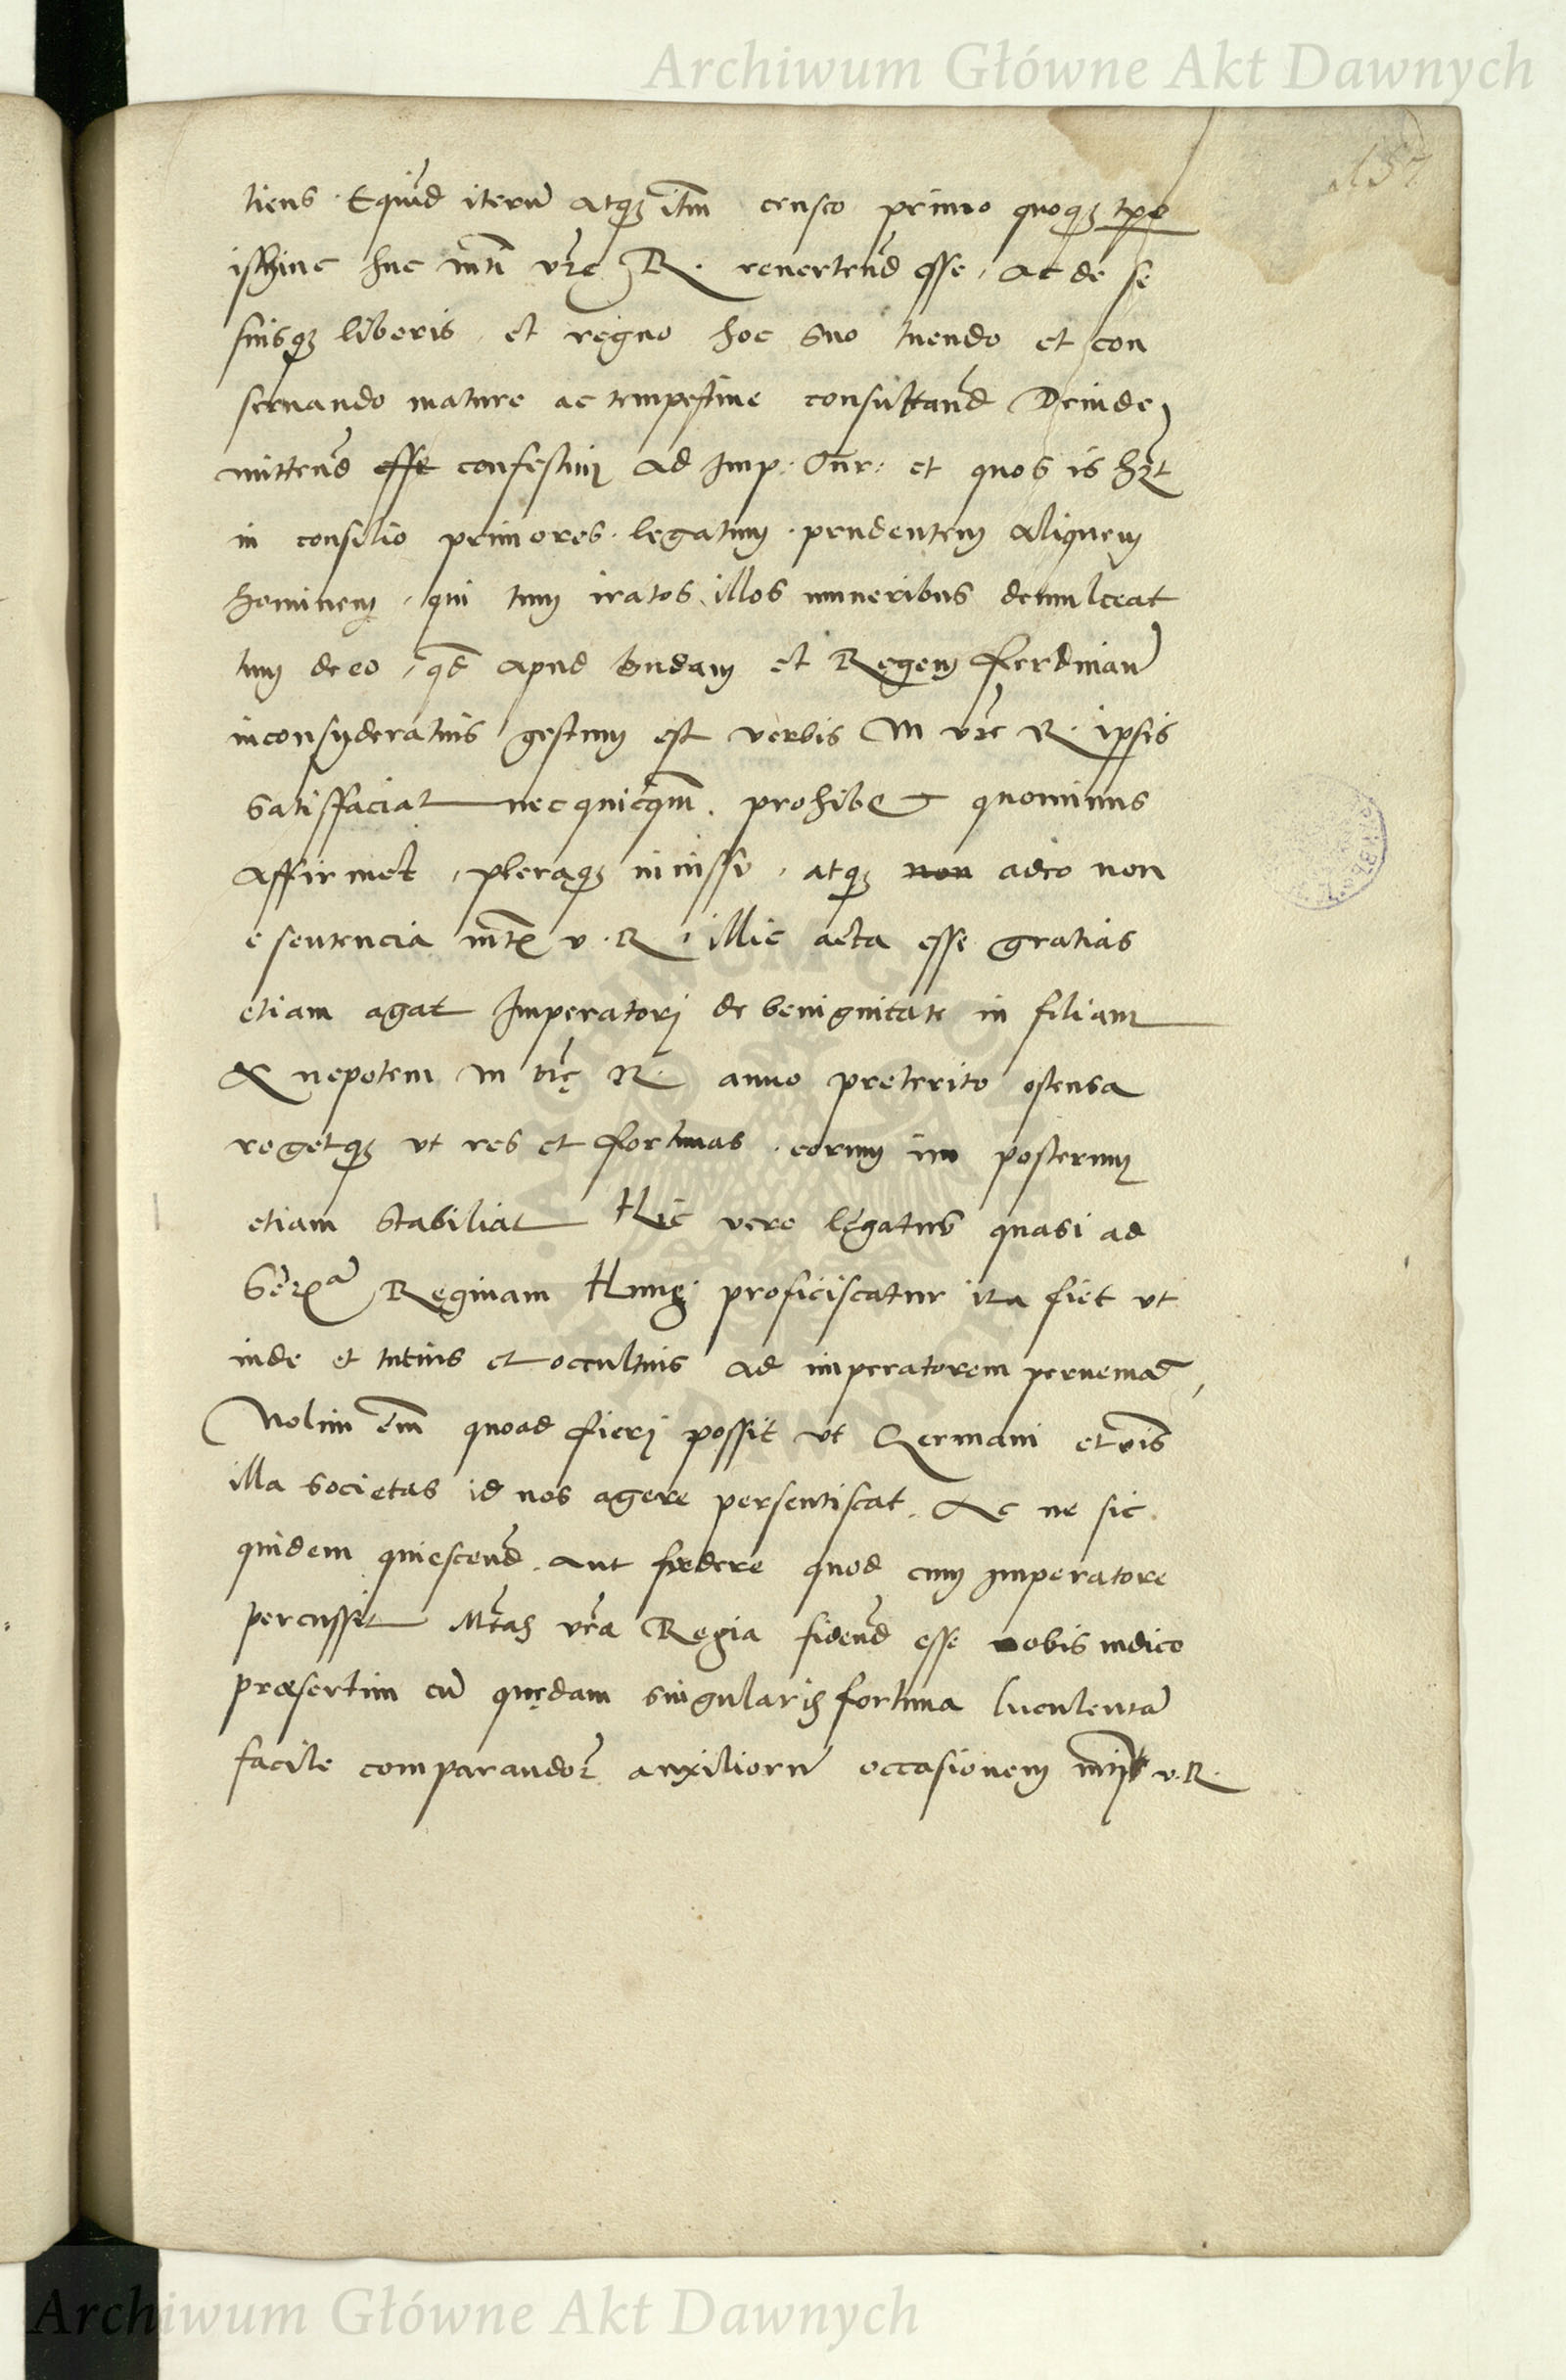 Archiwum Główne Akt Dawnych
157
tiens. Equid iterũ atq̨ itm̃ censeo primo quoq̨ tp̃e
isthinc huc mt̃i vr̃e R. reuertend̃ esse, ac de se
suisq̨ liberis, et regno hoc suo tuendo et con
seruando mature ac tempestiue consultand̃ Deinde
mittend̃ esse confestim ad Imp. et quos is hr̃t
in consilio primores. legatum. prudentem aliquem
hominem, qui tum iratos illos muneribus demulceat
tum de eo, qd̃ apud budam et Regem ferdinañ
inconsyderatius gestum est verbis M vr̃e R. ipsis
satisfaciat nec quicq̃m. prohibet quominus
affirmet, pleraq̨ iniussu, atq̨ non adeo non
e sentencia mt̃s v. R. illic acta esse gratias
etiam agat Imperatorj de benignitate in filiam
& nepotem M vr̃ę R. anno preterito ostensa
rogetq̨ vt res et fortunas. eorum in posterum
etiam stabiliat Hic vero legatus quasi ad
Ser̃ã Reginam Hung. proficiscatur ita fiet vt
inde et tutius et occultius ad imperatorem perueniat,
Nolim em̃ quoad fierj possit vt Germani et ois̃
illa societas id nos agere persentiscat. Ac ne sic
quidem quiescend̃. aut fœdere quod cum imperatore
percussit Mt̃as vr̃a Regia fidend̃ esse nobis iudico
præsertim cũ quędam singularis fortuna luculentã
facile comparandor̃ auxiliorũ occasionem mt̃j v. R.
Archiwum Główne Akt Dawnych